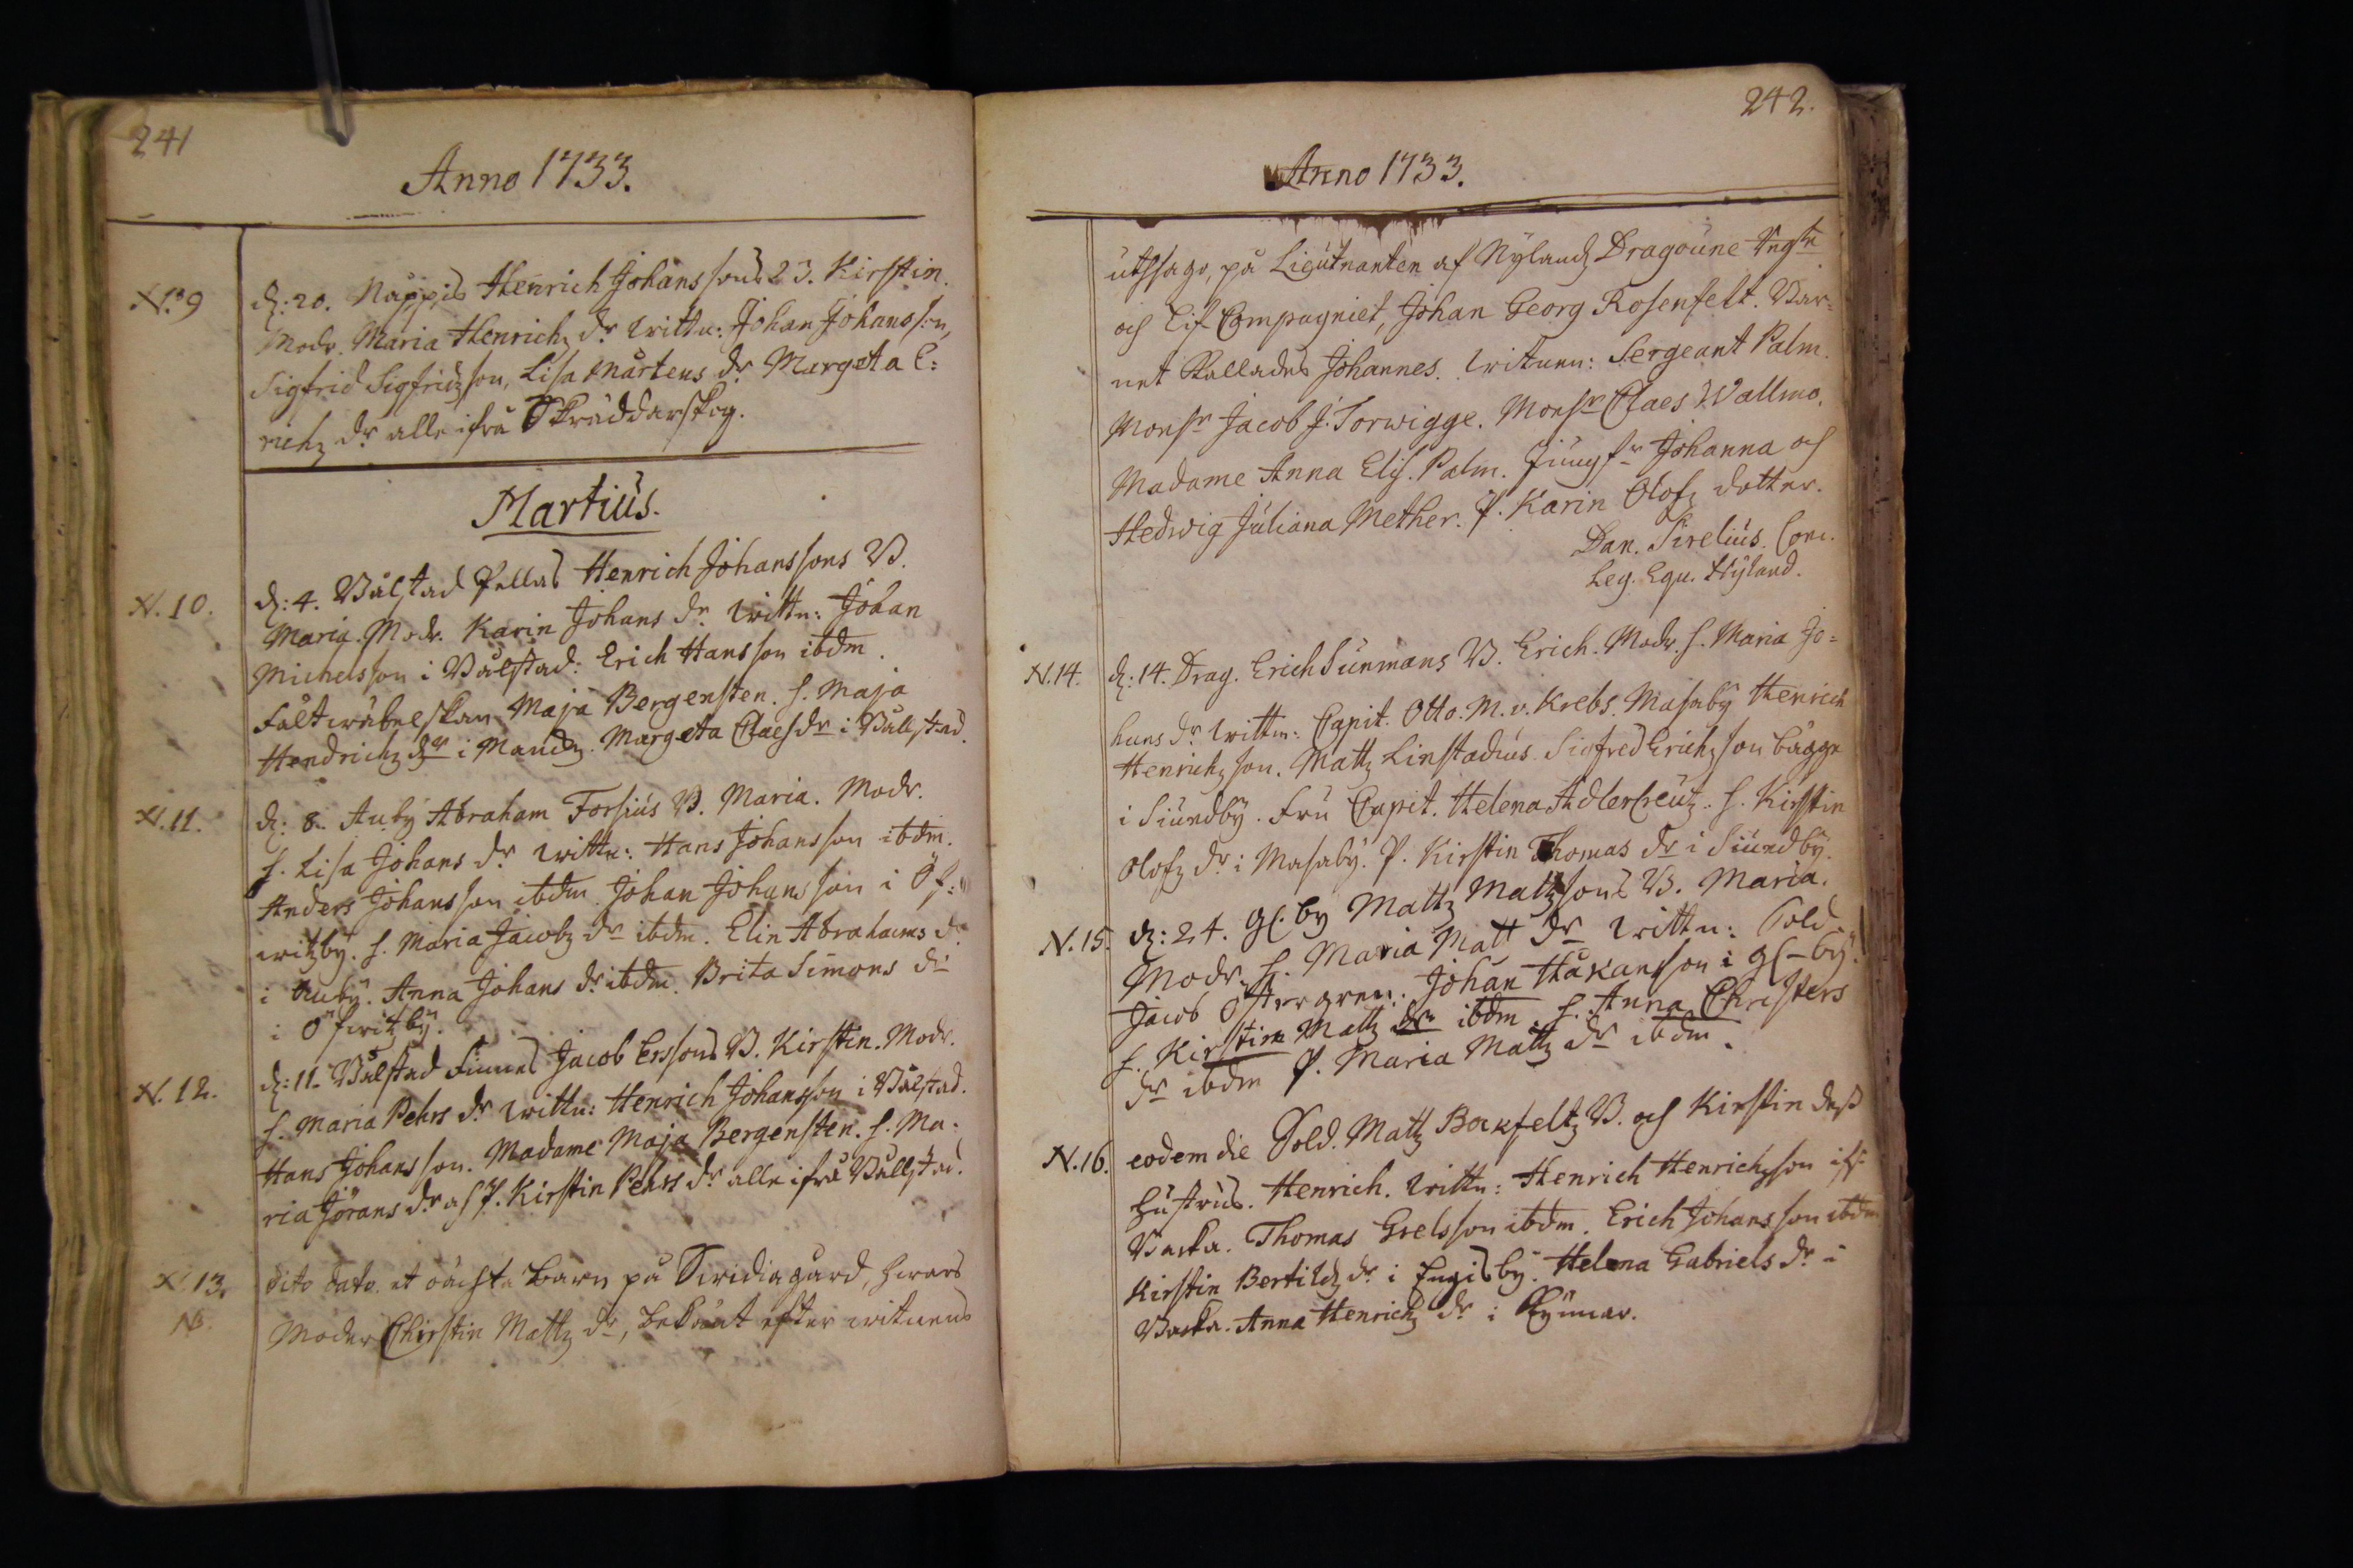 241
Anno 1733.
N:o 9
d: 20. Näppis Henrich Johanssons B. Kirstin.
Modr. Maria Henrichz dr Wittn: Johan Johansson,
Sigfrid Sigfridzson, Lisa Mårtens dr Margeta E:
richz dr alle ifrå Skräddarskog.
Martius.
N. 10.
d: 4. Bålstad Pellas Henrich Johanssons B.
Maria. Modr. Karin Johans dr Wittn: Johan
Michelsson i Bålstad: Erich Hansson ibdm.
Fältwäbelskan Maja Bergensten. h. Maja
Hendrichz dr i Mandz. Margeta Claes dr i Bållstad.
N. 11.
d: 8. Auby Abraham Forsius B. Maria. Modr.
h. Lisa Johans dr Wittn: Hans Johansson ibdm.
Anders Johansson ibdm. Johan Johansson i Öf:
witzby. h. Maria Jacobz dr ibdm. Elin Abrahams dr
i Auby. Anna Johans dr ibdm. Brita Simons dr
i Öfwitzby.
N. 12.
d: 11. Bålstad Finnes Jacob Erssons B. Kirstin. Modr.
h. Maria Pehrs dr Wittn: Henrich Johansson i Bålstad.
Hans Johansson. Madame Maja Bergensten. h. Ma:
ria Jörans dr och P. Kirstin Pehrs dr alle ifrå Bållstad.
N. 13.
NB.
dito dato. et oächta Barn på Swidia gård, hwars
Moder Chirstin Mattz dr, bekänt efter witnens
242.
Anno 1733.
uthsago, på Lieutnanten af Nylandz Dragoune Regte
och Lif Compagniet, Johan Georg Rosenfelt. Bar=
net Kallades Johannes. Witnen: Sergeant Palm.
Monsr Jacob J. Torwigge. Monsr Claes Wallmo.
Madame Anna Elis. Palm. Jungfr Johanna och
Hedwig Juliana Mether. P. Karin Olofz dotter.
Dan. Sirelius. Conc.
Leg. Equ. Nyland.
N. 14.
d: 14. Drag. Erich Sunmans B. Erich. Modr. h. Maria Jo=
hans dr Wittn: Capit. Otto. M. v. Krebs. Masaby Henrich
Henrichzson. Mattz Linstadius. Sigfred Erichzson bägge
i Siundby. Fru Capit. Helena Adlercreutz. h. Kirstin
Olofz dr i Masaby. P. Kirstin Thomas dr i Siundby.
N. 15.
d: 24. Gl: by Mattz Mattzsons B. Maria.
Modr. h. Maria Matt dr Wittn: Sold
Jacob Östergren: Johan Håkansson i Gl-by.
h. Kirstin Mattz dr ibdm. h. Anna Christers
dr ibdm P. Maria Mattz dr ibdm.
N. 16.
eodem die Sold. Mattz Bockfeltz B. och Kirstin dess
hustrus. Henrich. Wittn: Henrich Henrichzson if:
Backa. Thomas Grelsson ibdm. Erich Johansson ibdm
Kirstin Bertildz dr i Engisby. Helena Gabriels dr i
Backa. Anna Henrichz dr i Kynnar.